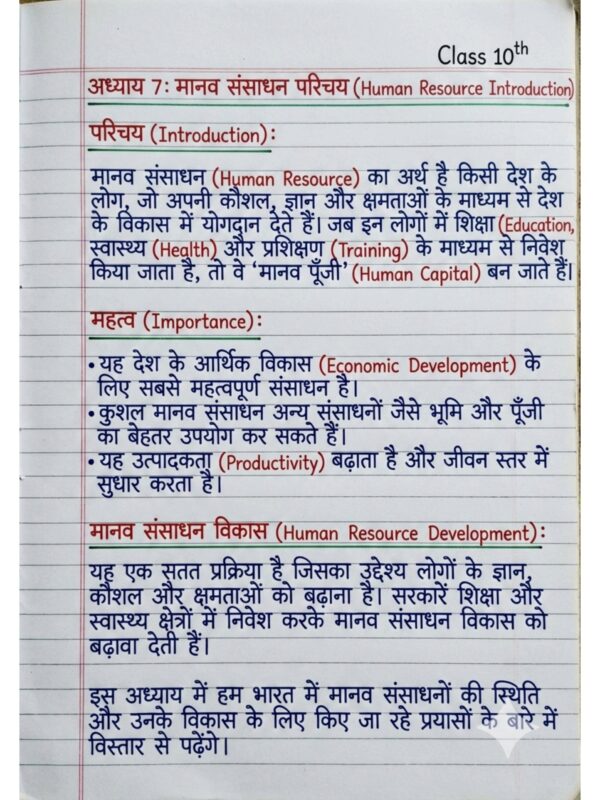 Class 10th
अध्याय 7: मानव संसाधन परिचय (Human Resource Introduction)
परिचय (Introduction):
मानव संसाधन (Human Resource) का अर्थ है किसी देश के
लोग, जो अपनी कौशल, ज्ञान और क्षमताओं के माध्यम से देश
के विकास में योगदान देते हैं। जब इन लोगों में शिक्षा (Education,
स्वास्थ्य (Health) और प्रशिक्षण (Training) के माध्यम से निवेश
किया जाता है, तो वे ‘मानव पूँजी’ (Human Capital) बन जाते हैं।
महत्व (Importance):
• यह देश के आर्थिक विकास (Economic Development) के
लिए सबसे महत्वपूर्ण संसाधन है।
• कुशल मानव संसाधन अन्य संसाधनों जैसे भूमि और पूँजी
का बेहतर उपयोग कर सकते हैं।
• यह उत्पादकता (Productivity) बढ़ाता है और जीवन स्तर में
सुधार करता है।
मानव संसाधन विकास (Human Resource Development):
यह एक सतत प्रक्रिया है जिसका उद्देश्य लोगों के ज्ञान,
कौशल और क्षमताओं को बढ़ाना है। सरकारें शिक्षा और
स्वास्थ्य क्षेत्रों में निवेश करके मानव संसाधन विकास को
बढ़ावा देती हैं।
इस अध्याय में हम भारत में मानव संसाधनों की स्थिति
और उनके विकास के लिए किए जा रहे प्रयासों के बारे में
विस्तार से पढ़ेंगे।